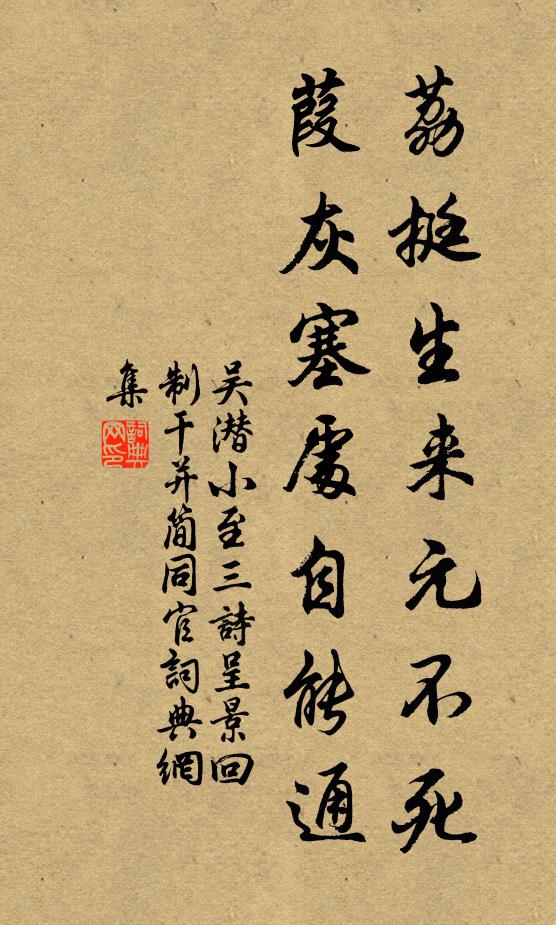 荔挺生来元不死
葭灰塞處自能通
吴潜小至三詩呈景回
制干并简同官詞典網
集
詞典
网印